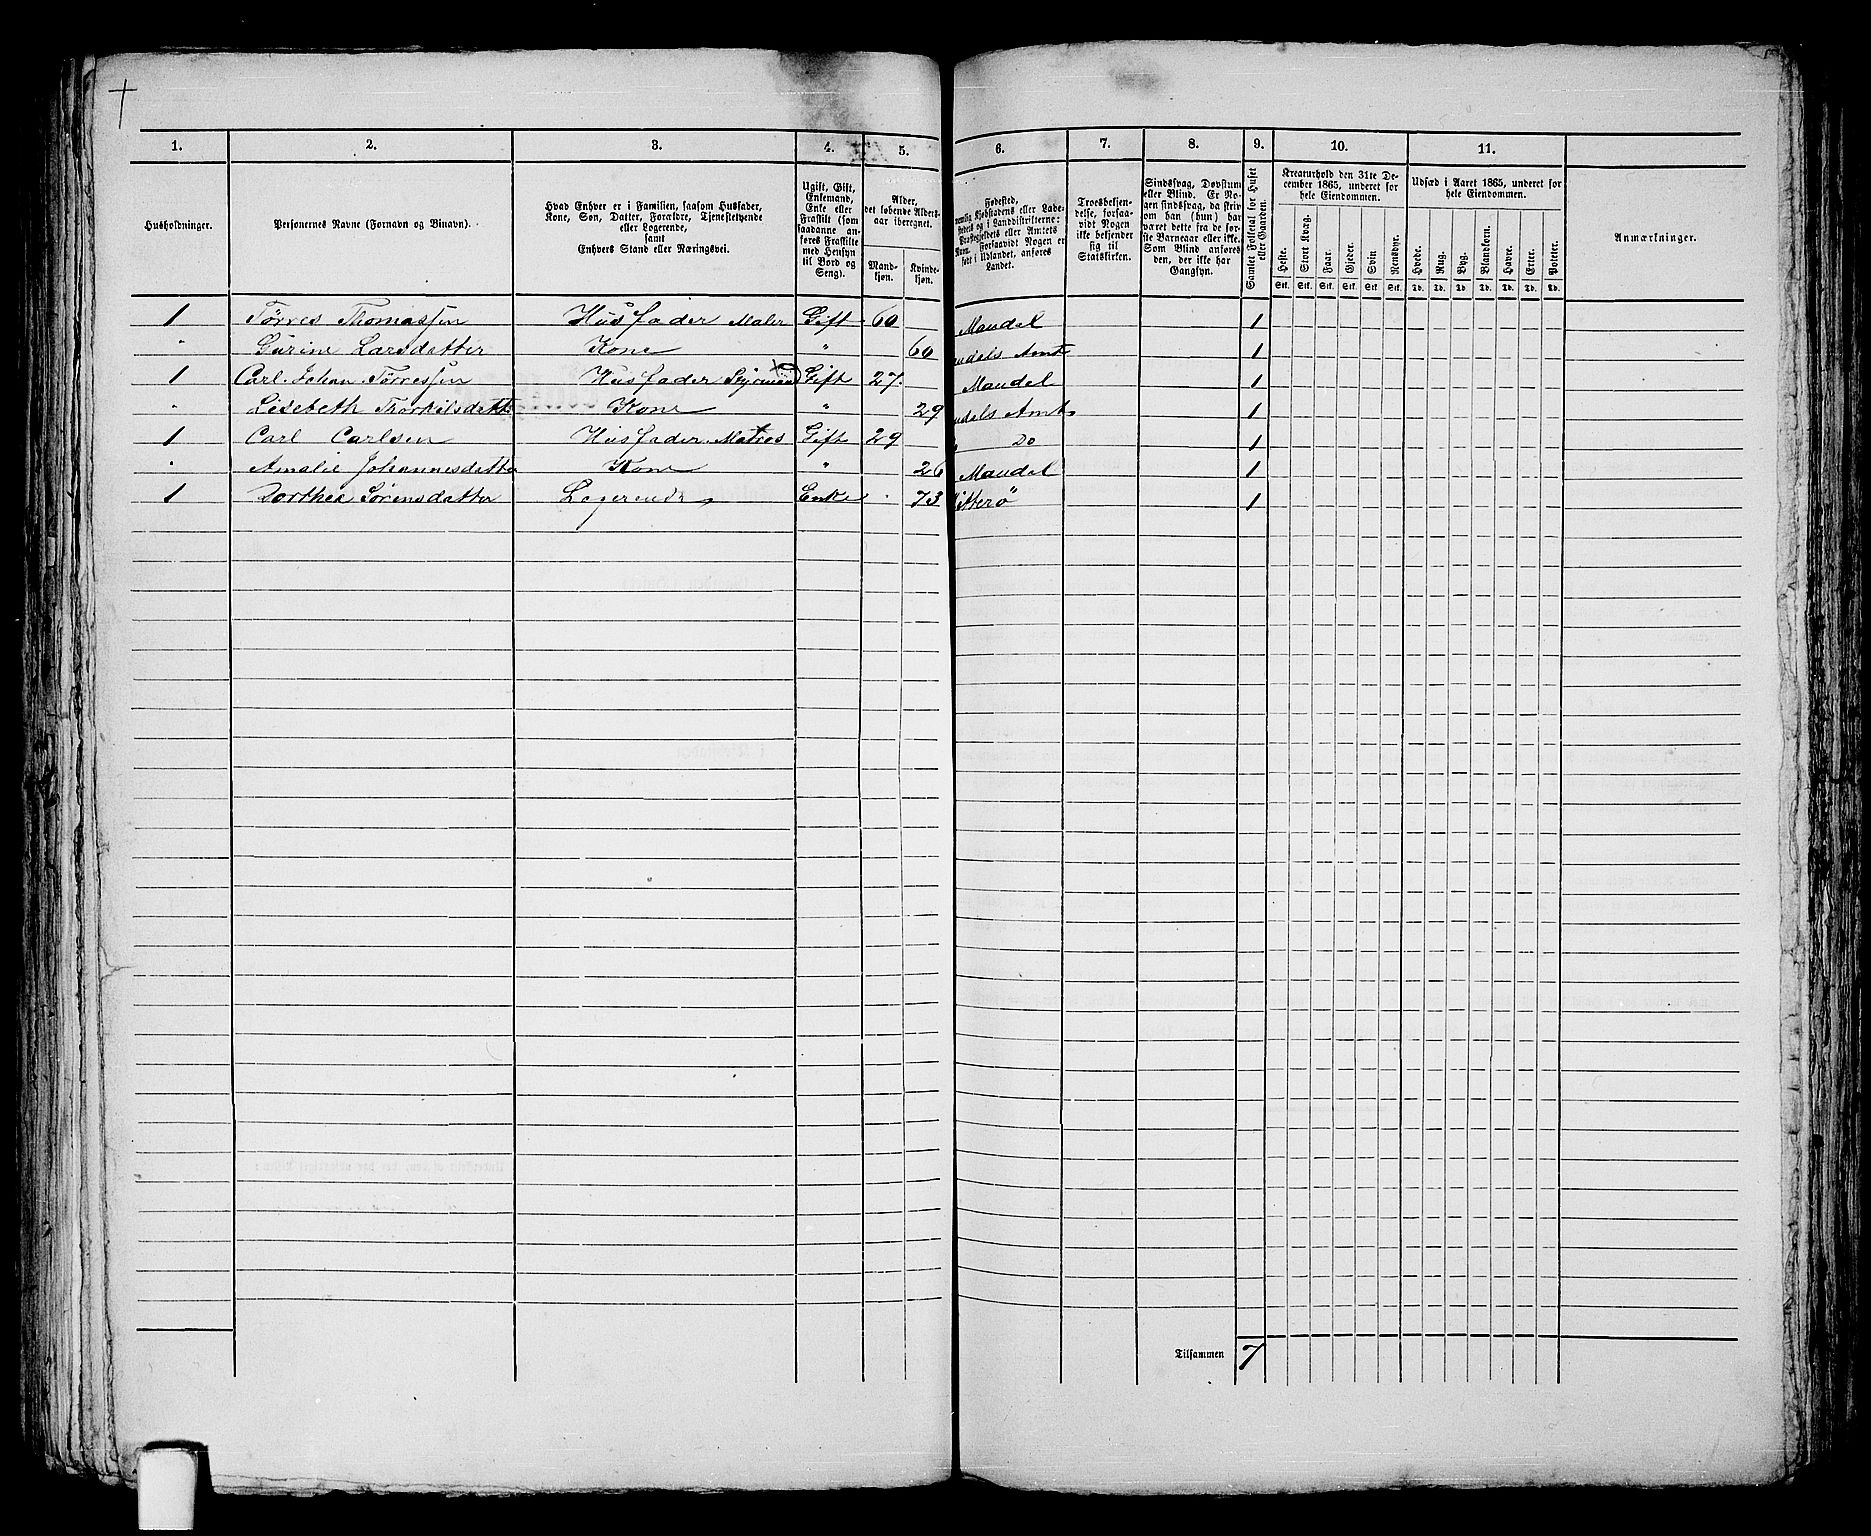 1. 2. 3. 4. 5. 6. 7. 8. 9. 10. 11.
Husholdninger.
Personernes Navne (Fornavn og Binavn).
Hvad Enhver er i Familien, saasom Husfader,
Kone, Søn, Datter, Forældre, Tjenestetyende
eller Logerende,
samt
Enhvers Stand eller Næringsvei.
Ugift, Gift,
Enkemand,
Enke eller
Fraskilt (som
saadanne an-
føres Fraskilte
med Hensyn
til Bord og
Seng).
Alder,
det løbende Alders-
aar iberegnet.
Mand-
kjøn.
Kvinde-
kjøn.
Fødested,
nemlig Kjøbstadens eller Lade-
stedets og i Landdistrikterne:
Præstegjeldets eller Amtets
Navn. Forsaavidt Nogen er
født i Udlandet, anføres
Landet.
Troesbekjen-
delse, forsaa-
vidt Nogen
ikke bekjender
sig til
Statskirken.
Sindssvag, Døvstum
eller Blind. Er No-
gen sindssvag, da skriv
om han (hun) har
været dette fra de før-
ste Barneaar eller ikke.
Som Blind anføres
den, der ikke har
Gangsyn.
Samlet Folketal for Huset
eller Gaarden.
Kreaturhold den 31te De-
cember 1865, underet for
hele Eiendommen.
Heste. Stort Kvæg. Faar. Gjeder. Svin Rensdyr.
Stk. Stk. Stk. Stk. Stk. Stk.
Udsæd i Aaret 1865, underet for
hele Eiendommen.
Hvede. Rug. Byg. Blandkorn. Havre. Erter. Poteter.
Td. Td. Td. Td. Td. Td. Td.
Anmærkninger.
1 Tørres Thomassen Husfader Maler Gift 60 Mandal 1
" Gurine Larsdatter Kone " 60 ndals Amt 1
1 Carl Johan Tørressen Husfader Styrmand Gift 27 Mandal 1
" Lisebeth Thorkilsdatt Kone " 29 ndals Amt 1
1 Carl Carlsen Husfader Matros Gift 29 Do 1
" Amalie Johannesdatter Kone " 26 Mandal 1
1 Dorthea Sørensdatter Logerende Enke 73 Hitterø 1
Tilsammen 7